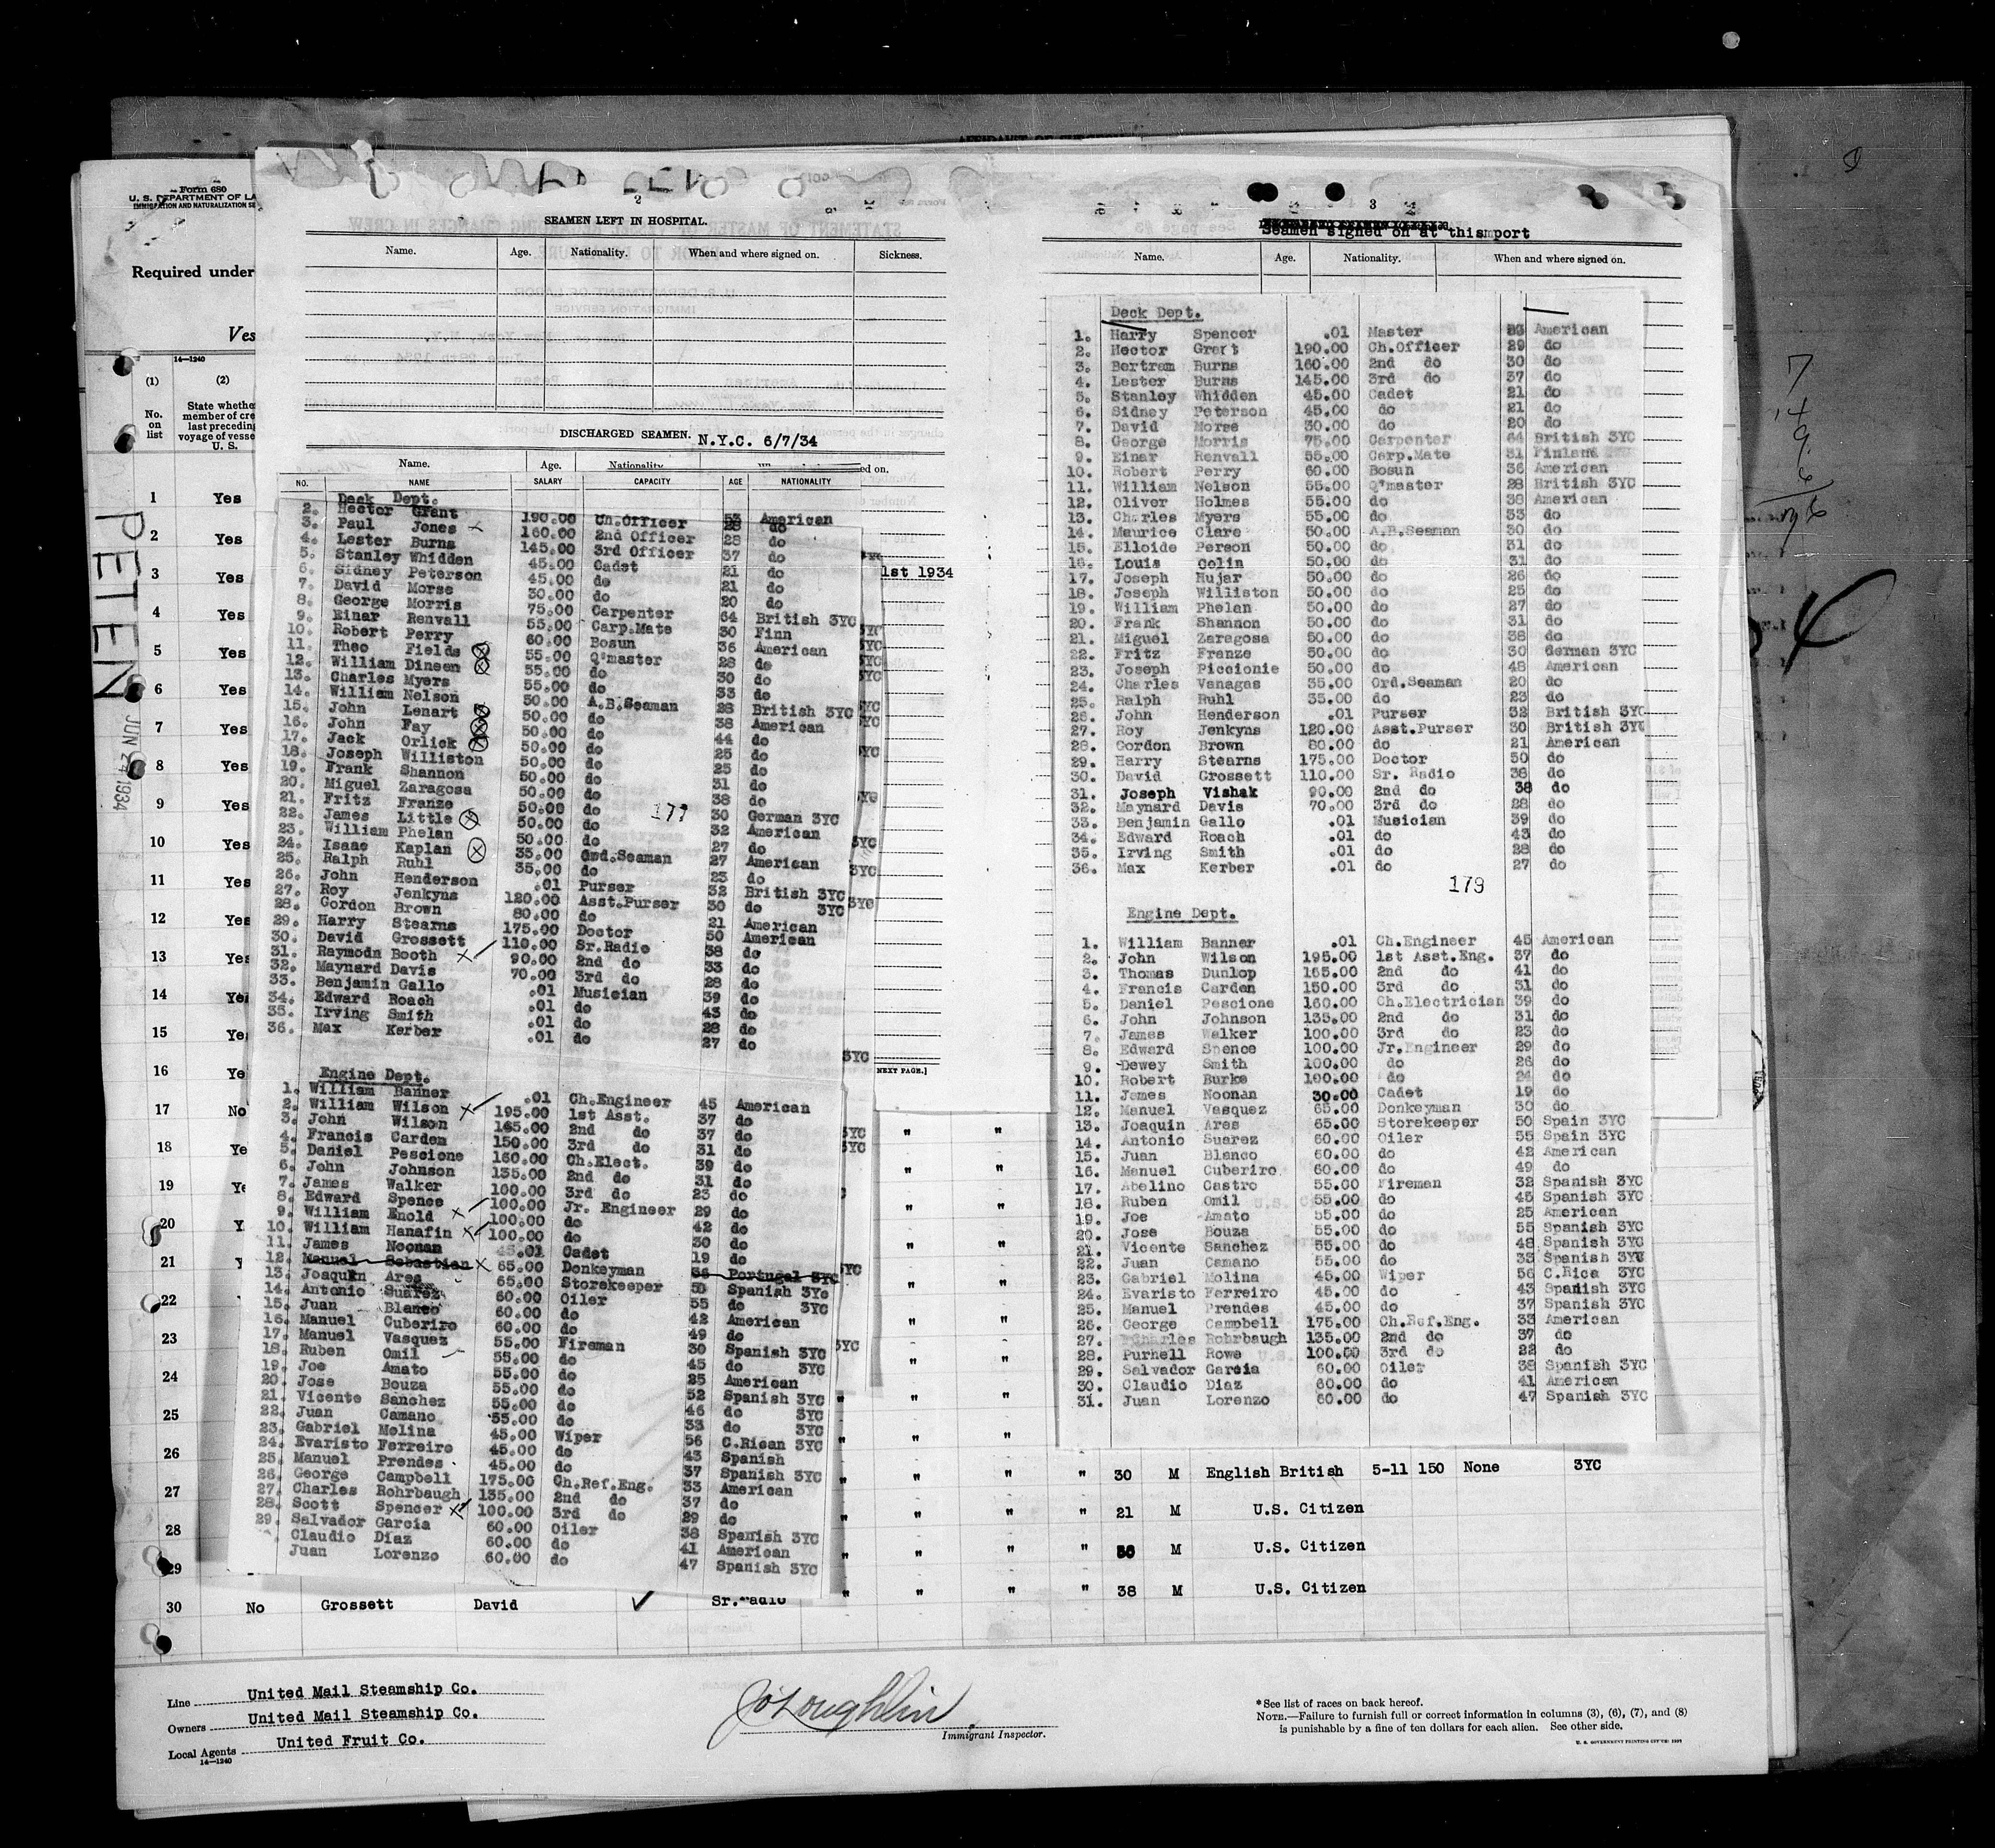 Form 680
U. S. DEPARTMENT OF LA
IMMIGRATION AND NATURALIZATION SE
Required under
Ves
14-1240
(1)
(2)
No. on list
State whether member of cre last preceding voyage of vesse U. S.
PETEN
JUN 24 1934
1 Yes
2 Yes
3 Yes
4 Yes
5 Yes
6 Yes
7 Yes
8 Yes
9 Yes
10 Yes
11 Yes
12 Yes
13 Yes
14 Yes
15 Ye
16 Ye
17 No
18 Ye
19 Ye
20 Y
21 Y
22
23
24
25
26
27
28
29
30 No Grossett David Sr.
2
SEAMEN LEFT IN HOSPITAL.
Name. Age. Nationality. When and where signed on. Sickness.
DISCHARGED SEAMEN. N.Y.C. 6/7/34
Name. Age. Nationality ed on.
NO. NAME SALARY CAPACITY AGE NATIONALITY
Deck Dept.
2. Hector Grant 190.00 Ch.Officer 53 American
3. Paul Jones 160.00 2nd Officer 28 do
4. Lester Burns 145.00 3rd Officer 37 do
5. Stanley Whidden 45.00 Cadet 21 do
6. Sidney Peterson 45.00 do 21 do
7. David Morse 30.00 do 20 do
8. George Morris 75.00 Carpenter 64 British 3YC
9. Einar Renvall 55.00 Carp.Mate 30 Finn
10. Robert Perry 60.00 Bosun 36 American
11. Theo Fields 55.00 Q'master 28 do
12. William Dineen 55.00 do 30 do
13. Charles Myers 55.00 do 33 do
14. William Nelson 50.00 A.B.Seaman 28 British 3YC
15. John Lenart 50.00 do 38 American
16. John Fay 50.00 do 44 do
17. Jack Orlick 50.00 do 25 do
18. Joseph Williston 50.00 do 25 do
19. Frank Shannon 50.00 do 31 do
20. Miguel Zaragosa 50.00 do 38 do
21. Fritz Franze 50.00 do 30 German 3YC
22. James Little 50.00 do 32 American
23. William Phelan 50.00 do 27 do
24. Isaac Kaplan 35.00 Ord.Seaman 27 American
25. Ralph Ruhl 35.00 do 23 do
26. John Henderson .01 Purser 32 British 3YC
27. Roy Jenkyns 120.00 Asst.Purser 30 do 3YC
28. Gordon Brown 80.00 do 21 American
29. Harry Stearns 175.00 Doctor 50 American
30. David Grossett 110.00 Sr.Radio 38 do
31. Raymodn Booth 90.00 2nd do 33 do
32. Maynard Davis 70.00 3rd do 28 do
33. Benjamin Gallo .01 Musician 39 do
34. Edward Roach .01 do 43 do
35. Irving Smith .01 do 28 do
36. Max Kerber .01 do 27 do
1st 1934
NEXT PAGE.]
Engine Dept.
1. William Banner .01 Ch.Engineer 45 American
2. William Wilson 195.00 1st Asst. 37 do
3. John Wilson 165.00 2nd do 37 do
4. Francis Carden 150.00 3rd do 31 do
5. Daniel Pescione 160.00 Ch.Elect. 39 do
6. John Johnson 135.00 2nd do 31 do
7. James Walker 100.00 3rd do 23 do
8. Edward Spence 100.00 Jr. Engineer 29 do
9. William Enold 100.00 do 42 do
10. William Hanafin 100.00 do 30 do
11. James Noonan 45.01 Cadet 19 do
12. Manuel Sebastian 65.00 Donkeyman Portugal 3YC
13. Joaquin Ares 65.00 Storekeeper 50 Spanish 3Yc
14. Antonio Suarez 60.00 Oiler 55 do 3YC
15. Juan Blanco 60.00 do 42 American
16. Manuel Cuberiro 60.00 do 49 do
17. Manuel Vasquez 55.00 Fireman 30 Spanish 3YC
18. Ruben Omil 55.00 do 45 do 3YC
19. Joe Amato 55.00 do 25 American
20. Jose Bouza 55.00 do 52 Spanish 3YC
21. Vicente Sanchez 55.00 do 46 do 3YC
22. Juan Camano 55.00 do 33 do 3YC
23. Gabriel Molina 45.00 Wiper 56 C.Rican 3YC
24. Evaristo Ferreiro 45.00 do 43 Spanish
25. Manuel Prendes 45.00 do 37 Spanish 3YC
26. George Campbell 175.00 Ch.Ref.Eng. 33 American
27. Charles Rohrbaugh 135.00 2nd do 37 do
28. Scott Spencer 100.00 3rd do 29 do
29. Salvador Garcia 60.00 Oiler 38 Spanish 3YC
Claudio Diaz 60.00 do 41 American
Juan Lorenzo 60.00 do 47 Spanish 3YC
3
Seamen signed on at this port
Name. Age. Nationality. When and where signed on.
Deck Dept.
1. Harry Spencer .01 Master American
2. Hector Grant 190.00 Ch.Officer 29 do
3. Bertram Burns 160.00 2nd do 30 do
4. Lester Burns 145.00 3rd do 37 do
5. Stanley Whidden 45.00 Cadet 21 do
6. Sidney Peterson 45.00 do 21 do
7. David Morse 30.00 do 20 do
8. George Morris 75.00 Carpenter 64 British 3YC
9. Einar Renvall 55.00 Carp.Mate 31 Finland
10. Robert Perry 60.00 Bosun 36 American
11. William Nelson 55.00 Q'master 28 British 3YC
12. Oliver Holmes 55.00 do 38 American
13. Charles Myers 55.00 do 33 do
14. Maurice Clare 50.00 A.B.Seaman 30 do
15. Elloide Person 50.00 do 31 do
16. Louis Colin 50.00 do 31 do
17. Joseph Hujar 50.00 do 26 do
18. Joseph Williston 50.00 do 25 do
19. William Phelan 50.00 do 27 do
20. Frank Shannon 50.00 do 31 do
21. Miguel Zaragosa 50.00 do 38 do
22. Fritz Franze 50.00 do 30 German 3YC
23. Joseph Piccionie 50.00 do 48 American
24. Charles Vanagas 35.00 Ord.Seaman 20 do
25. Ralph Ruhl 35.00 do 23 do
26. John Henderson .01 Purser 32 British 3YC
27. Roy Jenkyns 120.00 Asst.Purser 30 British 3YC
28. Gordon Brown 80.00 do 21 American
29. Harry Stearns 175.00 Doctor 50 do
30. David Grossett 110.00 Sr. Radio 38 do
31. Joseph Vishak 90.00 2nd do 38 do
32. Maynard Davis 70.00 3rd do 28 do
33. Benjamin Gallo .01 Musician 39 do
34. Edward Roach .01 do 43 do
35. Irving Smith .01 do 28 do
36. Max Kerber .01 do 27 do
179
Engine Dept.
1. William Banner .01 Ch.Engineer 45 American
2. John Wilson 195.00 1st Asst.Eng. 37 do
3. Thomas Dunlop 165.00 2nd do 41 do
4. Francis Carden 150.00 3rd do 31 do
5. Daniel Pescione 160.00 Ch.Electrician 39 do
6. John Johnson 135.00 2nd do 31 do
7. James Walker 100.00 3rd do 23 do
8. Edward Spence 100.00 Jr.Engineer 29 do
9. Dewey Smith 100.00 do 26 do
10. Robert Burke 100.00 do 24 do
11. James Noonan 30.00 Cadet 19 do
12. Manuel Vasquez 65.00 Donkeyman 30 do
13. Joaquin Ares 65.00 Storekeeper 50 Spain 3YC
14. Antonio Suarez 60.00 Oiler 55 Spain 3YC
15. Juan Blanco 60.00 do 42 American
16. Manuel Cuberiro 60.00 do 49 do
17. Abelino Castro 55.00 Fireman 32 Spanish 3YC
18. Ruben Omil 55.00 do 45 Spanish 3YC
19. Joe Amato 55.00 do 25 American
20. Jose Bouza 55.00 do 55 Spanish 3YC
21. Vicente Sanchez 55.00 do 48 Spanish 3YC
22. Juan Camano 55.00 do 33 Spanish 3YC
23. Gabriel Molina 45.00 Wiper 56 C.Rica 3YC
24. Evaristo Ferreiro 45.00 do 43 Spanish 3YC
25. Manuel Prendes 45.00 do 37 Spanish 3YC
26. George Campbell 175.00 Ch.Ref.Eng. 33 American
27. Charles Rohrbaugh 135.00 2nd do 37 do
28. Purnell Rowe 100.00 3rd do 22 do
29. Salvador Garcia 60.00 Oiler 38 Spanish 3YC
30. Claudio Diaz 60.00 do 41 American
31. Juan Lorenzo 60.00 do 47 Spanish 3YC
" " " 30 M English British 5-11 150 None 3YC
" " " 21 M U.S. Citizen
" " " M U.S. Citizen
" " " 38 M U.S. Citizen
Line United Mail Steamship Co.
Owners United Mail Steamship Co.
Local Agents United Fruit Co.
14-1240
J O'Loughlin
Immigrant Inspector.
*See list of races on back hereof.
NOTE.—Failure to furnish full or correct information in columns (3), (6), (7), and (8)
is punishable by a fine of ten dollars for each alien. See other side.